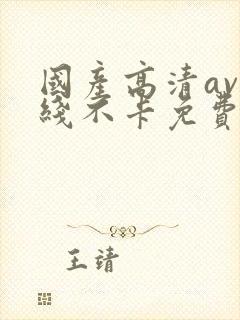 國產高清av
綫不卡免費
王靖